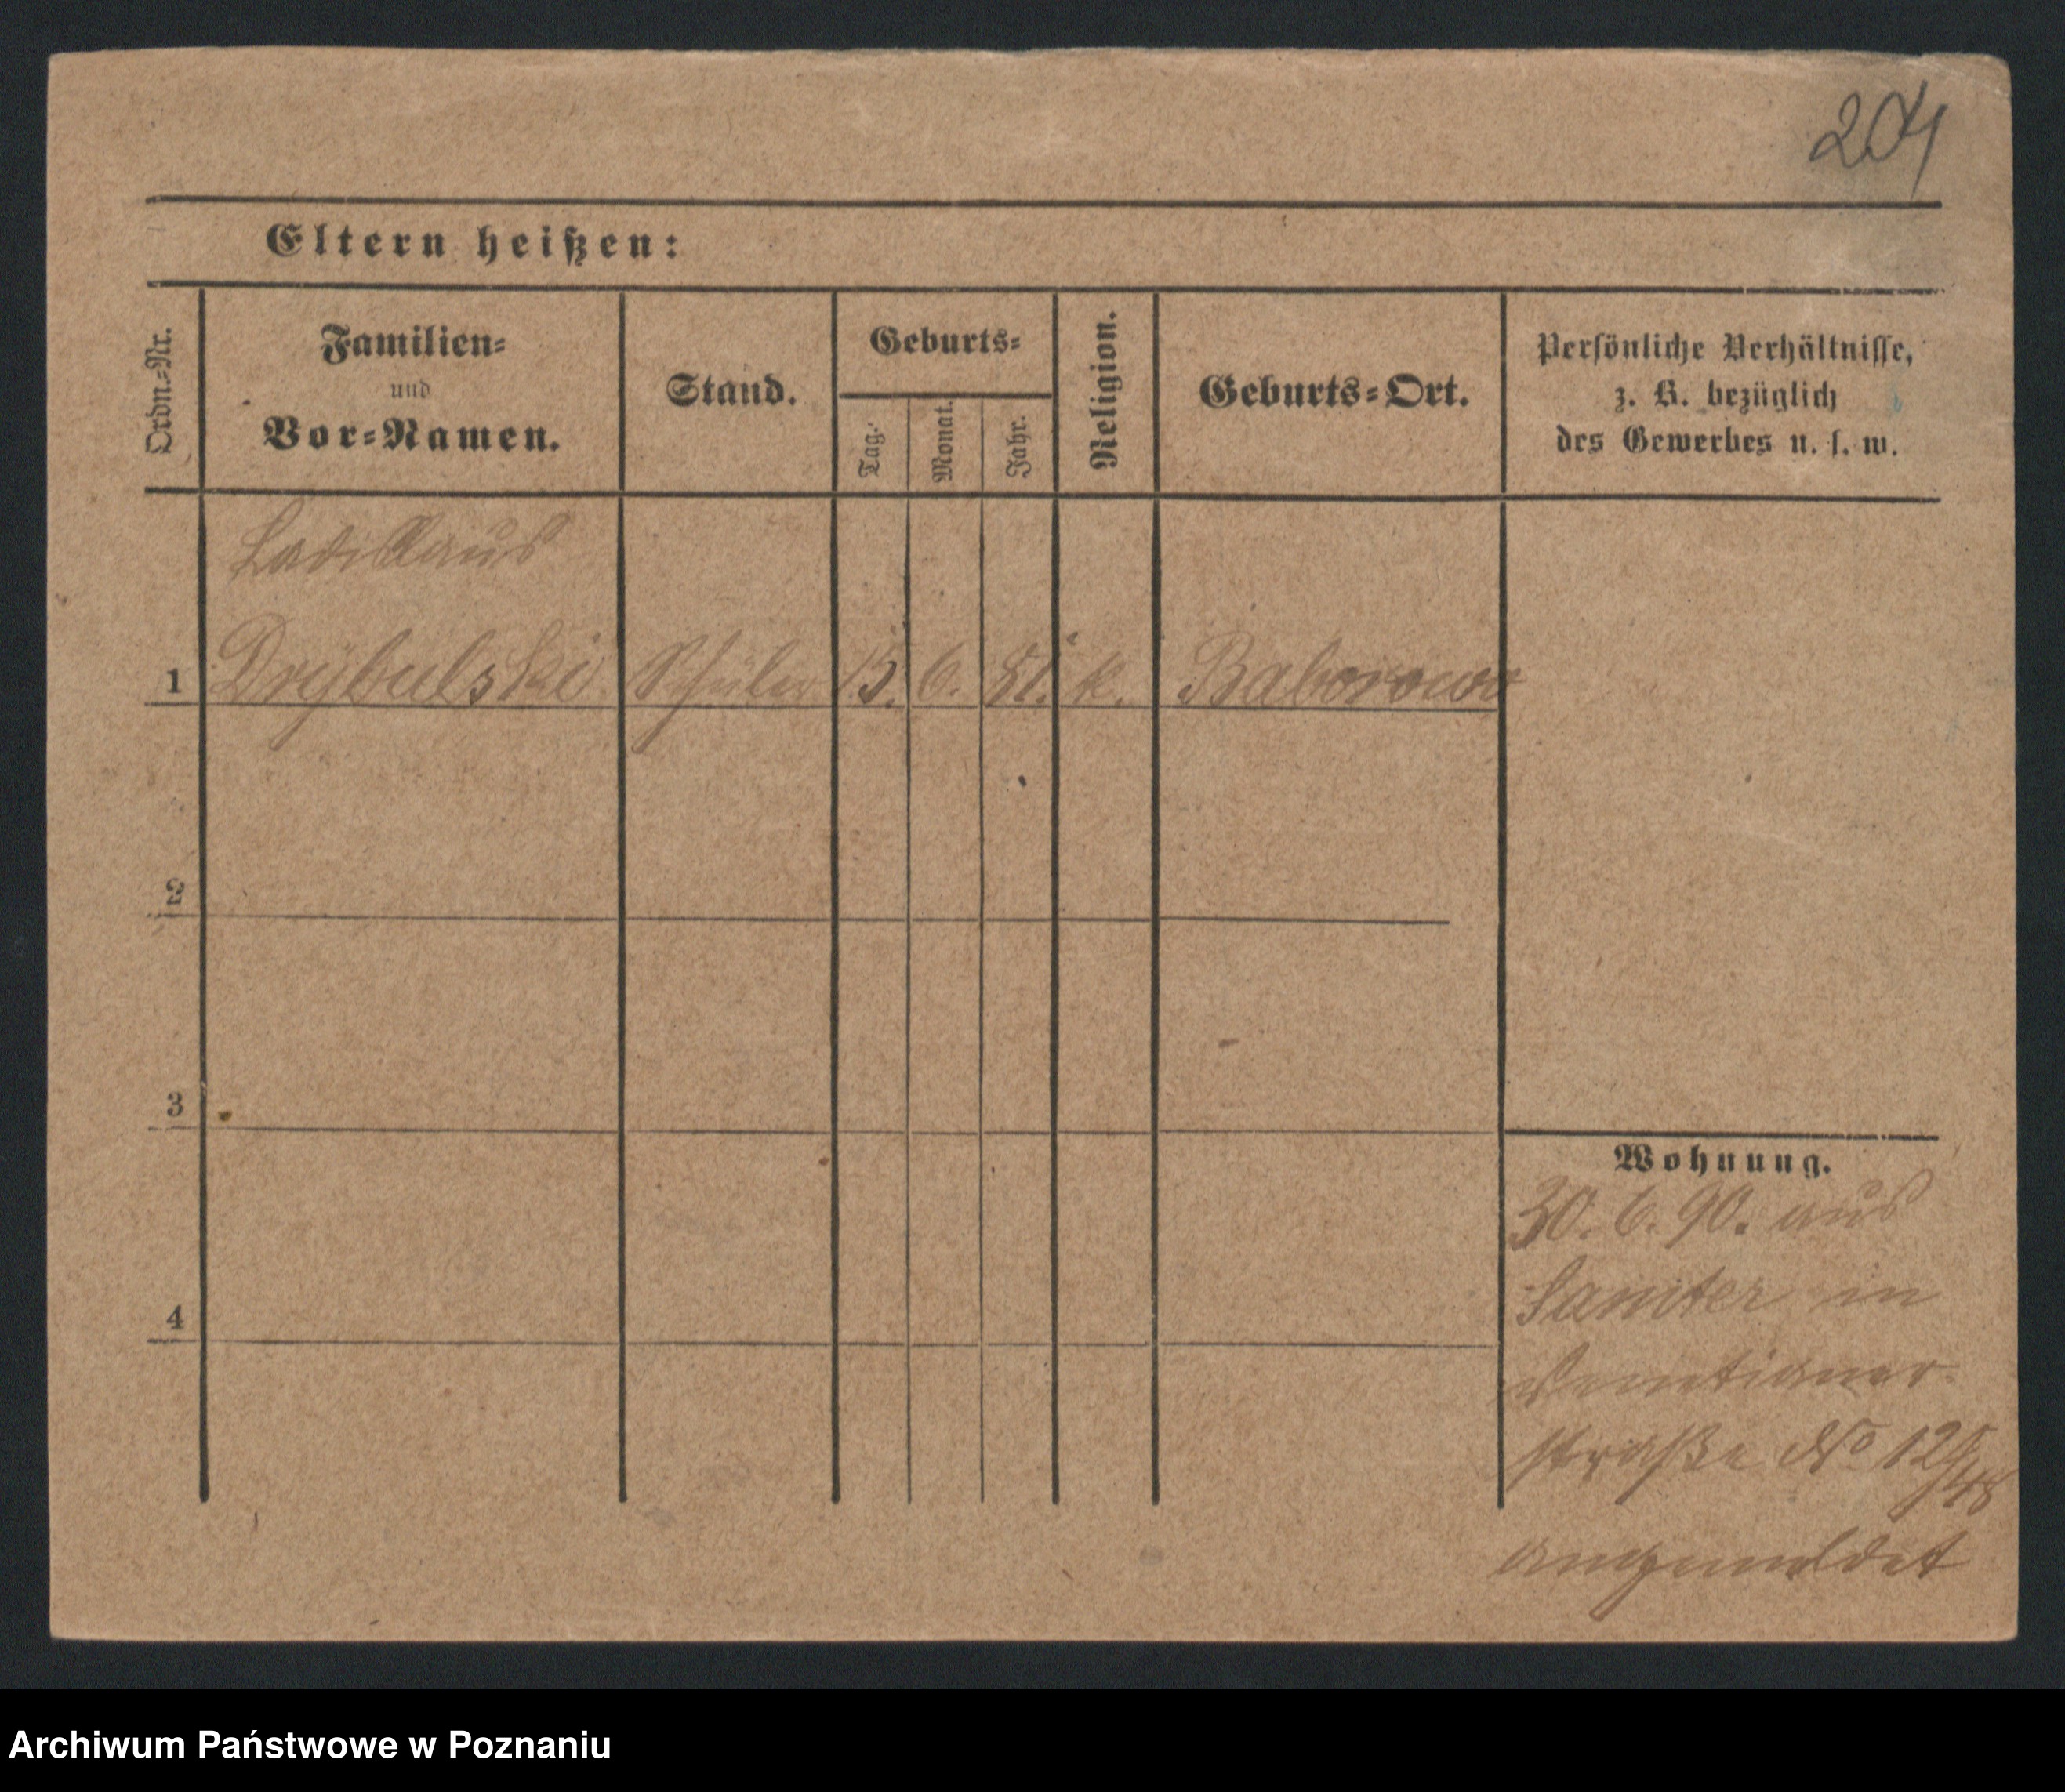 204
Eltern heißen:
Ordn.-Nr.
Familien-
und
Vor-Namen.
Stand.
Geburts-
Tag.
Monat.
Jahr.
Religion.
Geburts-Ort.
Persönliche Verhältnisse,
z. B. bezüglich
des Gewerbes u. s. w.
Ladislaus
1 Drÿbulski Schüler 15. 6. k. Baborowo
2
3
4
Wohnung.
30. 6. 90. aus
Samter in
Venetianer-
straße No 12/
angemeldet
Archiwum Państwowe w Poznaniu